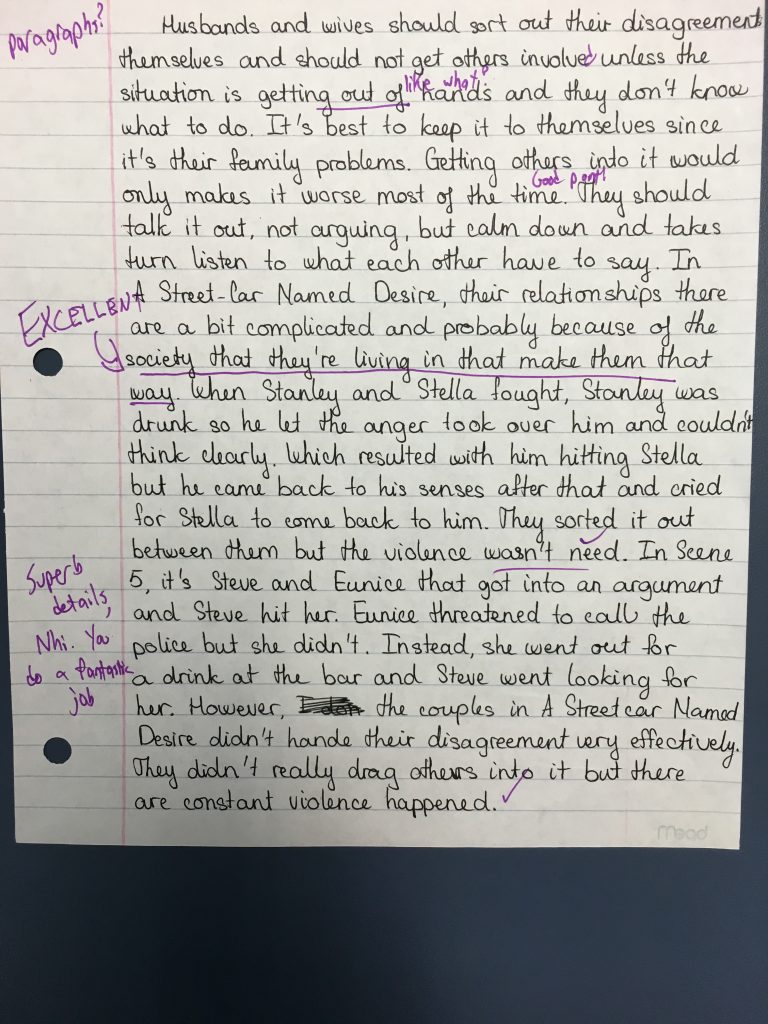 paragraphs?
Husbands and wives should sort out their disagreements
themselves and should not get others involved unless the
like what?
situation is getting out of hands and they don't know
what to do. It's best to keep it to themselves since
it's their family problems. Getting others into it would
Good point!
only makes it worse most of the time. They should
talk it out, not arguing, but calm down and takes
turn listen to what each other have to say. In
EXCELLENT
A Street-Car Named Desire, their relationships there
are a bit complicated and probably because of the
society that they're living in that make them that
way. When Stanley and Stella fought, Stanley was
drunk so he let the anger took over him and couldn't
think clearly. Which resulted with him hitting Stella
but he came back to his senses after that and cried
for Stella to come back to him. They sorted it out
between them but the violence wasn't need. In Scene
5, it's Steve and Eunice that got into an argument
and Steve hit her. Eunice threatened to call the
police but she didn't. Instead, she went out for
a drink at the bar and Steve went looking for
her. However, the couples in A Streetcar Named
Desire didn't hande their disagreement very effectively.
They didn't really drag others into it but there
are constant violence happened.
Superb
details,
Nhi. You
do a fantastic
job
Mead